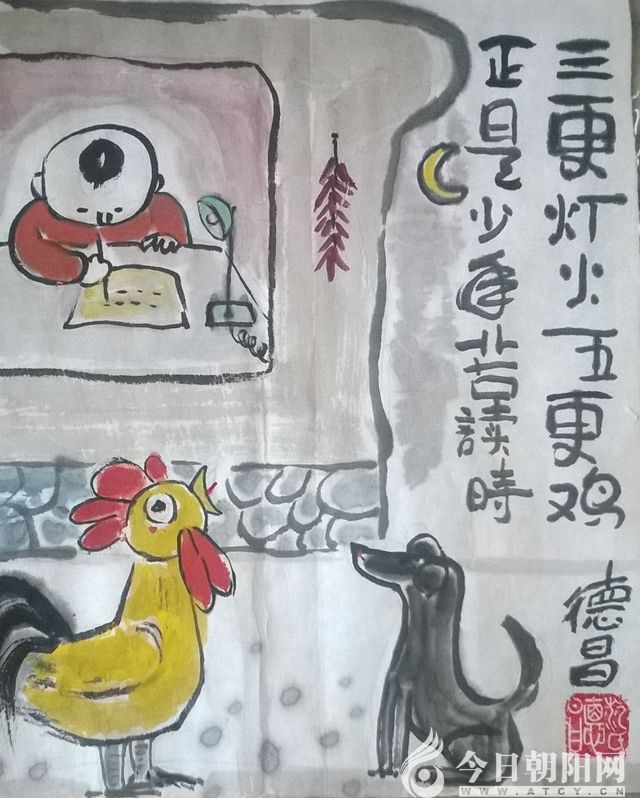 三更灯火五更鸡
正是少年苦讀時
德昌
今日朝阳网
WWW.ATCY.CN